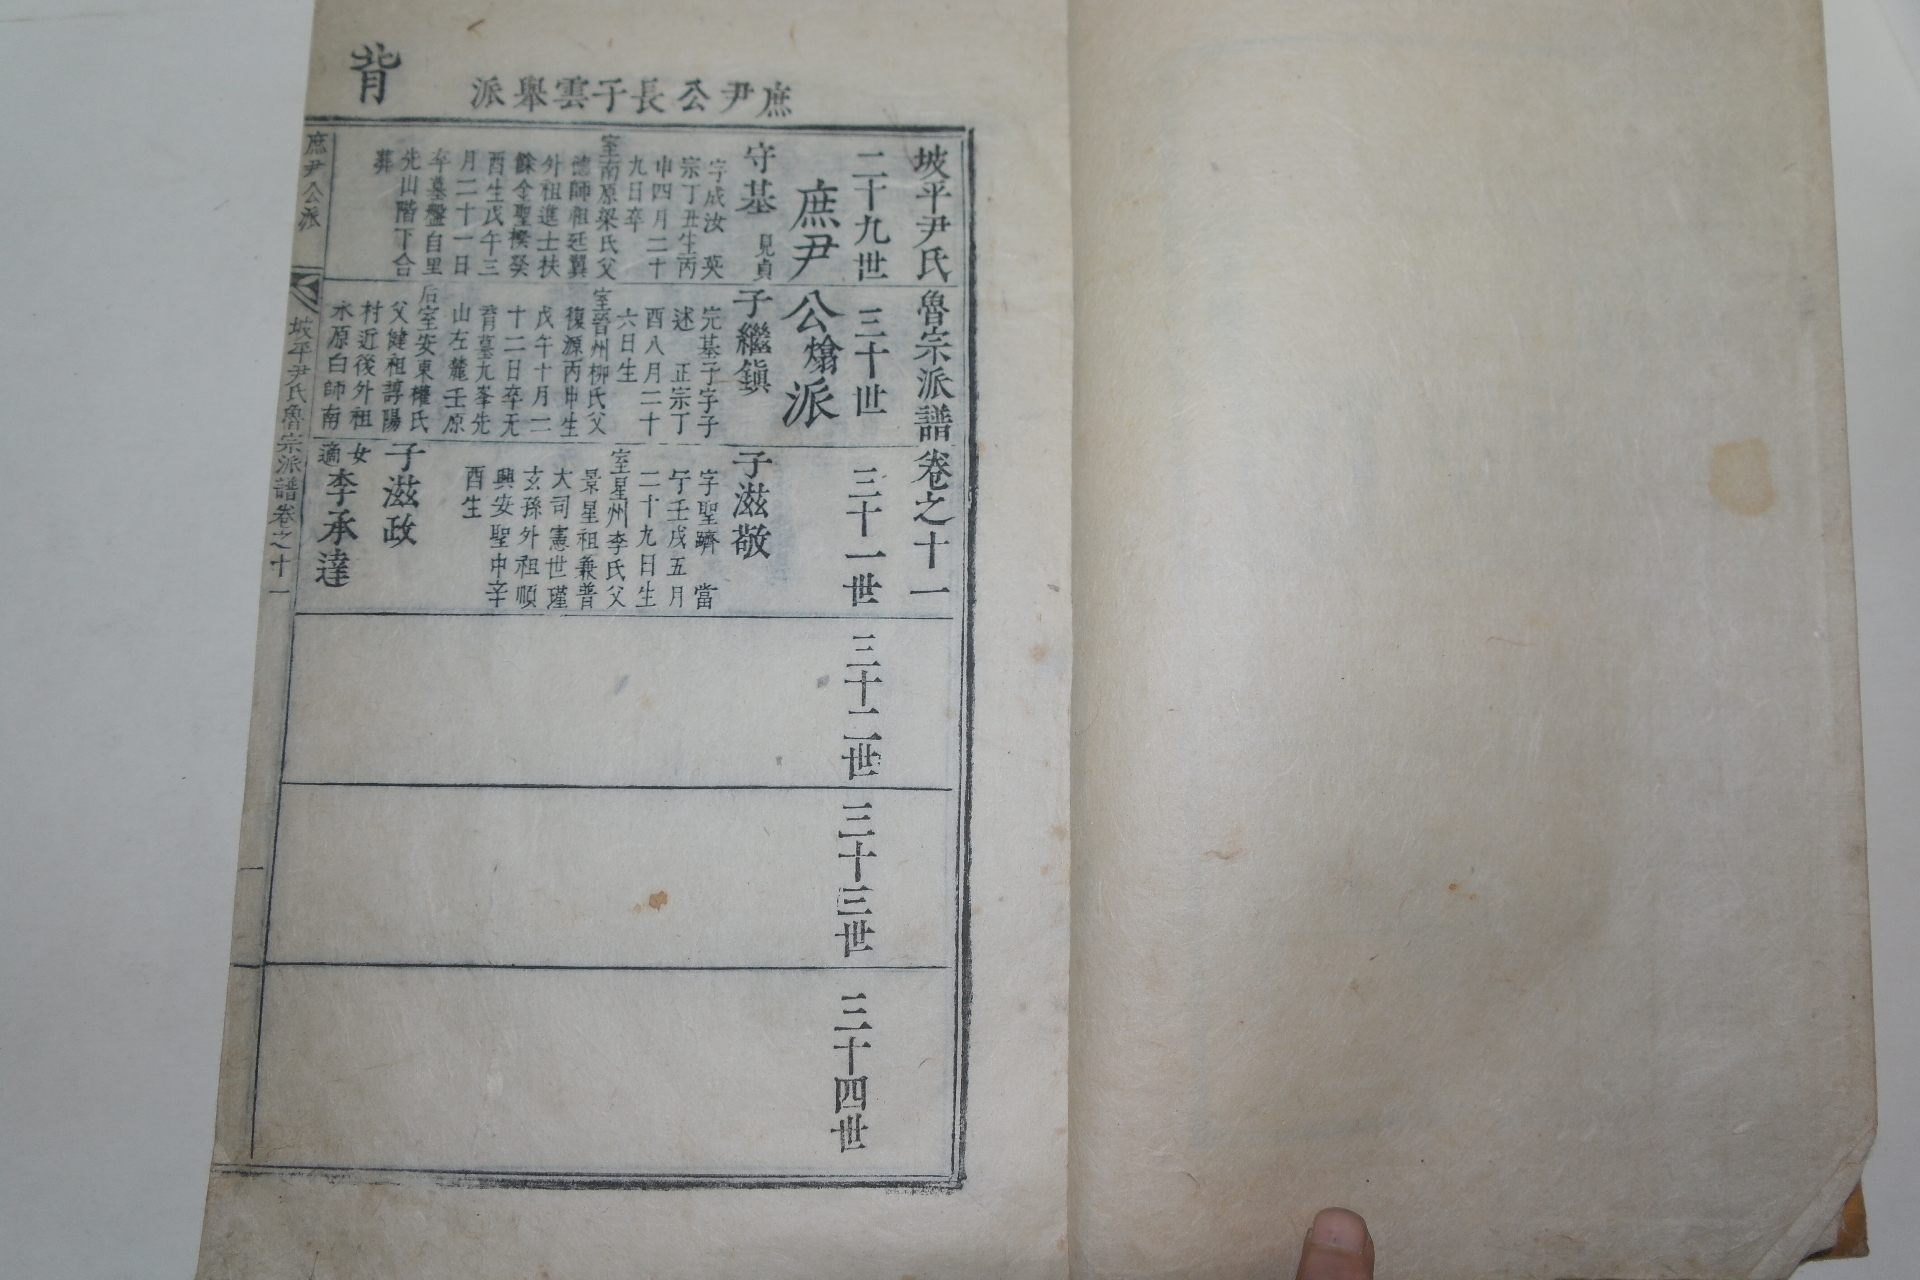 背
庶尹公長子雲擧派
坡平尹氏魯宗派譜卷之十一
二十九世
三十世
三十一世
三十二世
三十三世
三十四世
庶尹公熻派
守基 見貞
字成汝 英
宗丁丑生丙
申四月二十
九日卒
室南原梁氏父
德師祖廷翼
外祖進士扶
餘金聖 癸
酉生戊午三
月二十一日
卒墓盤自里
先山階下合
葬
子繼鎭
完基子字子
述 正宗丁
酉八月二十
六日生
室晉州柳氏父
復源丙申生
戊午十月二
十二日卒无
育墓九峯先
山左麓壬原
后室安東權氏
父健祖諄陽
村近後外祖
水原白師南
子滋敬
字聖躋 當
宁壬戌五月
二十九日生
室星州李氏父
景星祖兼普
大司憲世瑾
玄孫外祖順
興安聖中辛
酉生
子滋政
女適李承達
庶尹公派
坡平尹氏魯宗派譜卷之十一
一